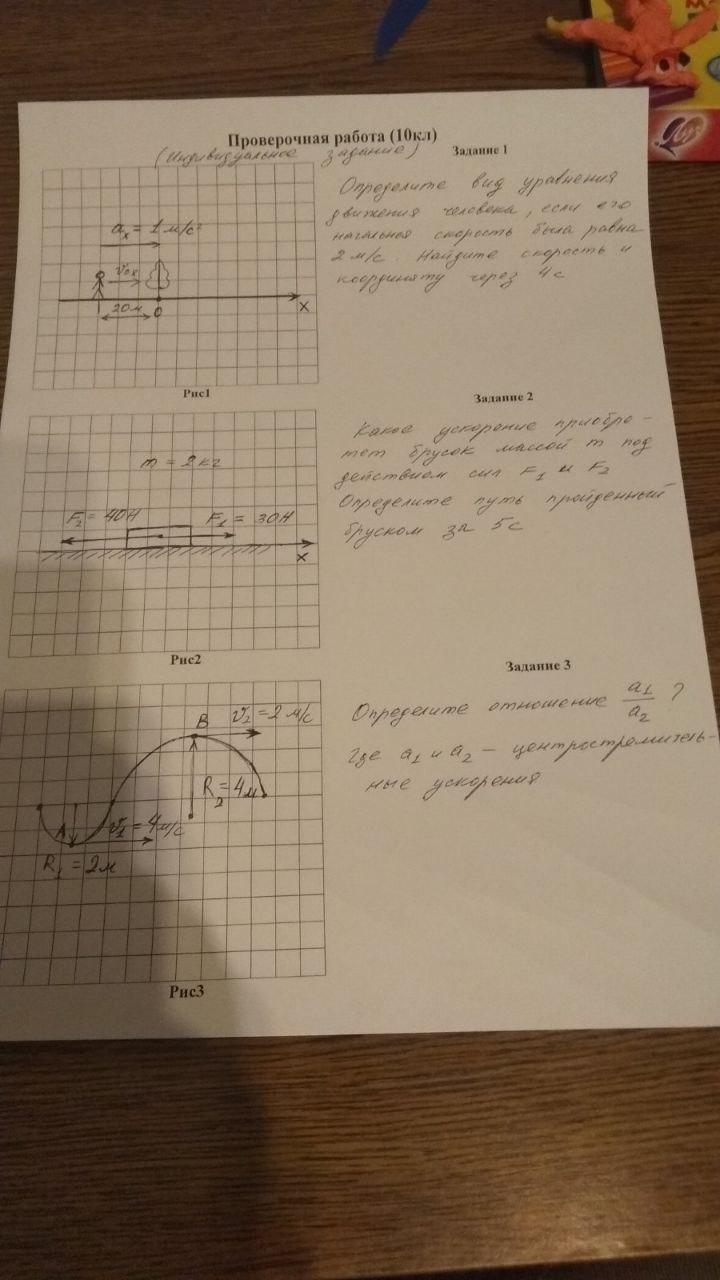 Проверочная работа (10кл)
(Индивидуальное задание)
Задание 1
aₓ = 1 м/с²
v₀ₓ
20м
0
X
Рис1
Определите вид уравнения
движения человека, если его
начальная скорость была равна
2 м/с. Найдите скорость и
координату через 4с
Задание 2
m = 2кг
F₂ = 40Н
F₁ = 30Н
X
Рис2
Какое ускорение приобре-
тет брусок массой m под
действием сил F₁ и F₂
Определите путь пройденный
бруском за 5с
Задание 3
B
v₂ = 2 м/с
R₂ = 4м
A
v₁ = 4м/с
R₁ = 2м
Рис3
Определите отношение a₁/a₂ ?
Где a₁ и a₂ – центростремитель-
ные ускорения
Луч